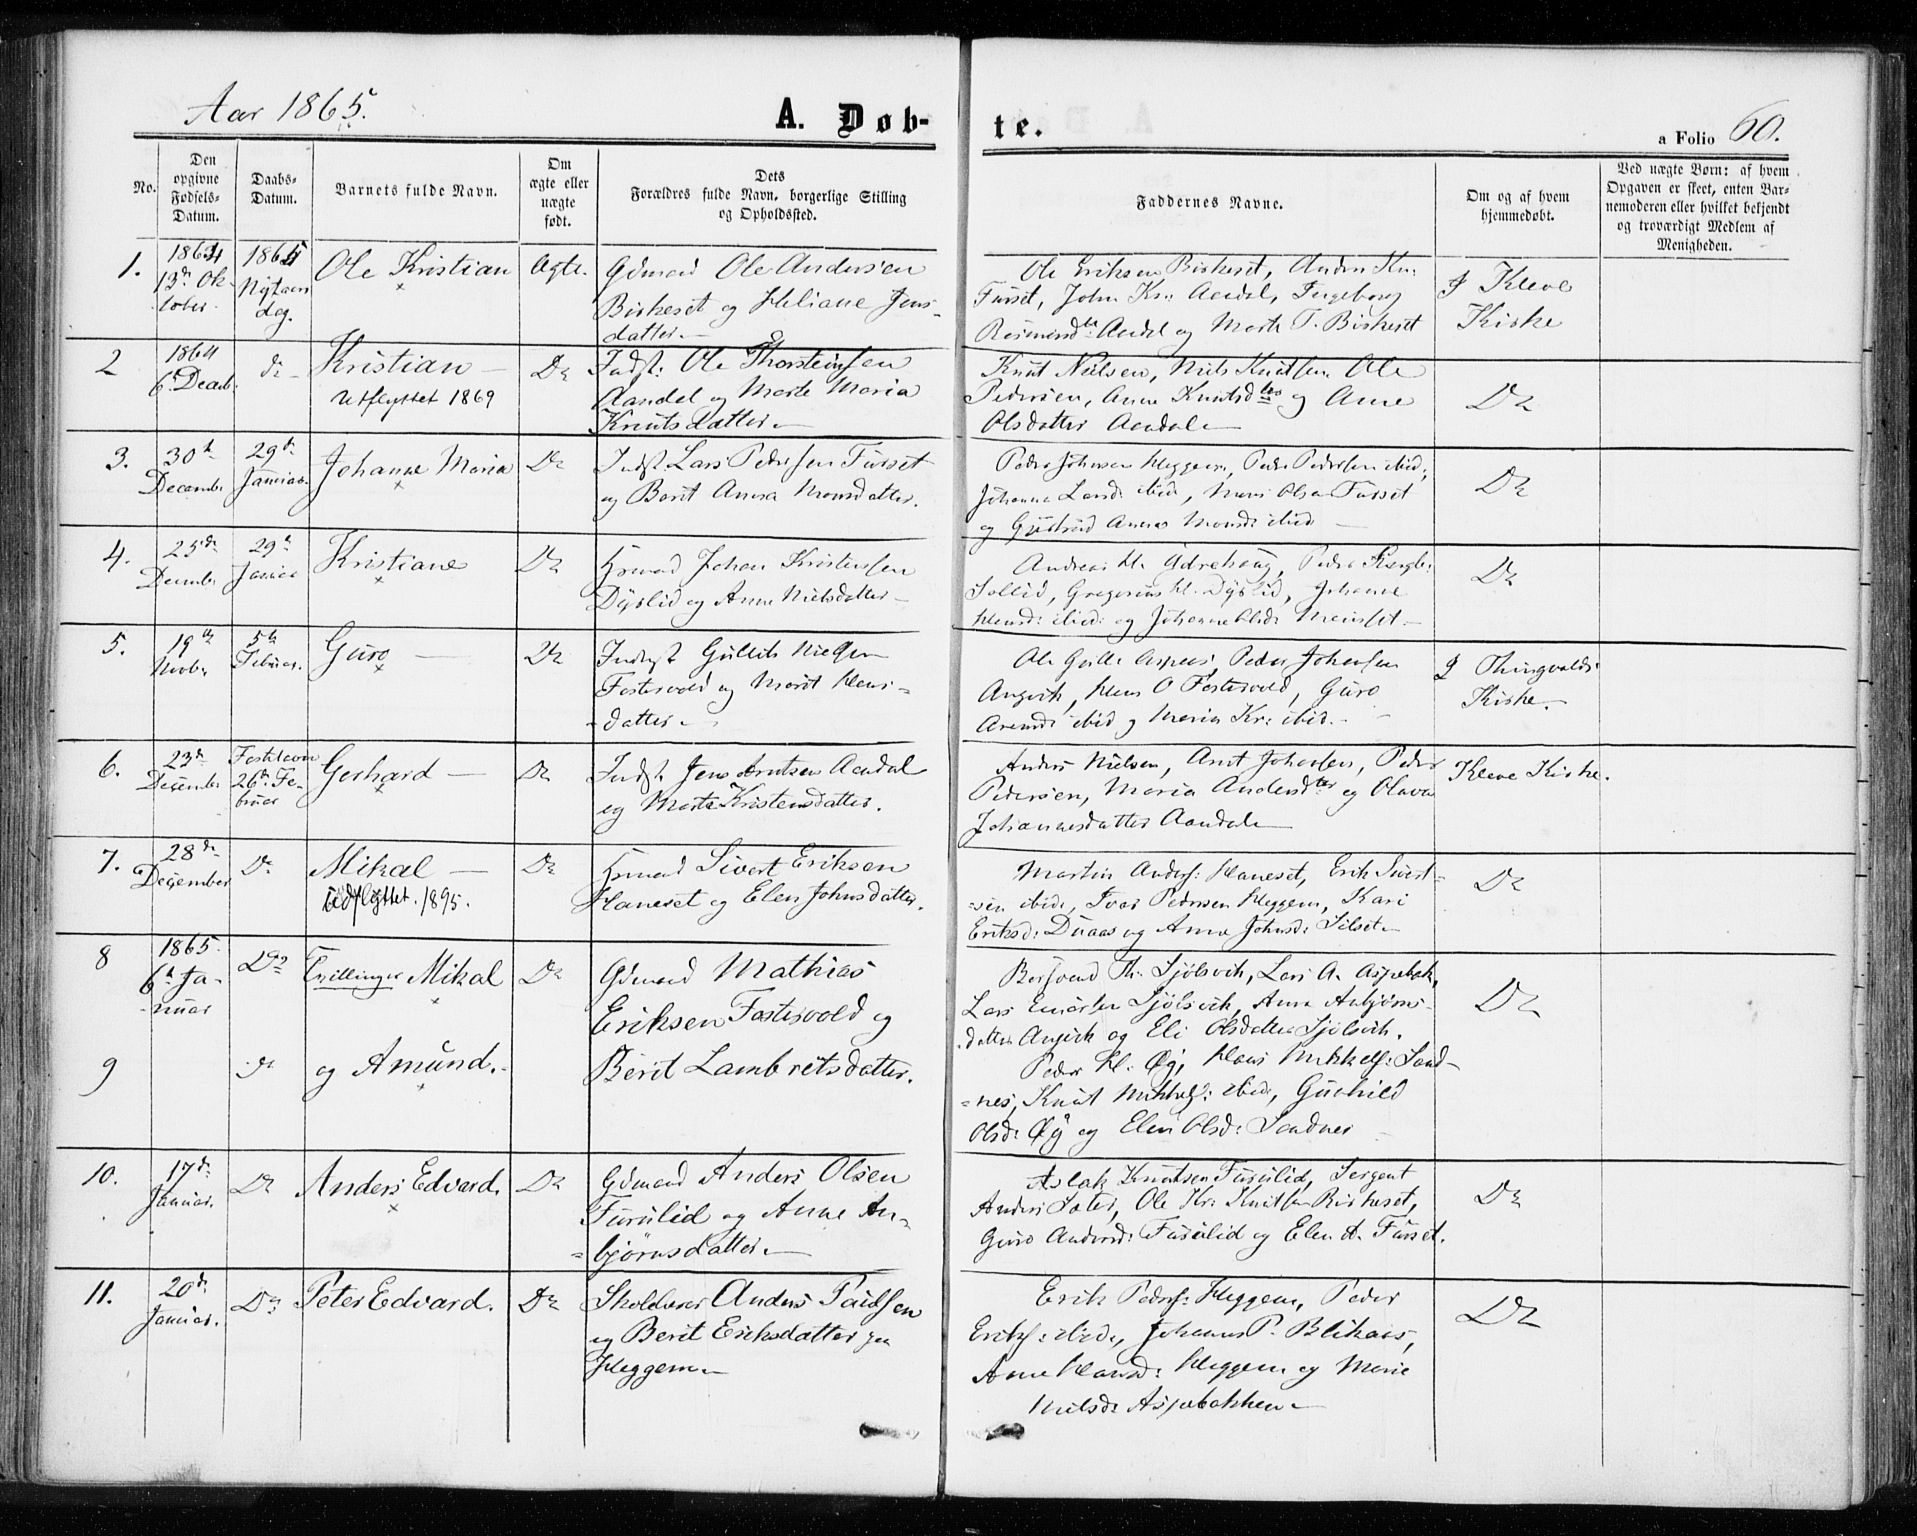 Aar 1865.
A. Døb-
te.
a Folio 60.
No.
Den opgivne Fødsels-Datum.
Daabs-Datum.
Barnets fulde Navn.
Om ægte eller uægte født.
Dets Forældres fulde Navn, borgerlige Stilling og Opholdssted.
Faddernes Navne.
Om og af hvem hjemmedøbt.
Ved uægte Børn: af hvem Opgaven er skeet, enten Barnemoderen eller hvilket bekjendt og troværdigt Medlem af Menigheden.
1.
1864
13de Ok-
tober.
1865
Nytaars
dag.
Ole Kristian
Ægte.
Gdmand Ole Andersen
Birkeset og Heliane Jens-
datter.
Ole Eriksen Birkeset, Anders
Furset, John Kr: Aandal, Ingeborg
Aandal og Marte T. Birkeset
I Kleve
Kirke
2
1864
6te Decemb.
do
Kristian
Utflyttet 1869
Do
Indst: Ole Thorsteinsen
Aandal og Marte Maria
Knutsdatter
Knut Nielsen, Niels Knutsen, Ole
Pedersen, Anne Knutsdter og Anne
Olsdatter Aandal
Do
3.
30te
Decembr
29de
Januar
Johanne Maria
Do
Indst Lars Pedersen Furset
og Berit Anna Monsdatter.
Peder Johnsen Heggem, Peder Pedersen ibid,
Johanne Larsd: ibid, Mons Olsen Furset
og Anna Monsd: ibid
Do
4.
25de
December
29de
Januar
Kristiane
Do
Gdmand Johan Kristensen
Dyrlid og Anne Nielsdatter
Andreas H.
Sollid, Gregorius H. Dyrlid, Johanne
Hansd: ibid: og Johanne Olsd:
Do
5.
19de
Novb.
5te
Februar.
Guro
Do
Indst Gullik Nielsen
Fostervold og Marit Hans-
datter
Peder Johansen
Angvik, Hans O Fostervold, Guro
Arentsd: ibid og Maria Kr: ibid.
I Thingvolds
Kirke.
6.
23de
December
Fastelavn
26de Fe-
bruar
Gerhard
Do
Indst: Jens Arntsen Aandal
og Marte Kristensdatter.
Anders Nielsen, Arnt Johansen, Peder
Pedersen, Maria Andersdter og Olava
Johannesdatter Aandal
Kleve Kirke.
7.
28de
December
Do
Mikal
Udflyttet. 1895.
Do
Gdmand Sivert Eriksen
Haneset og Elen Johnsdatter.
Martin Anders: Haneset, Erik Sivert-
sen ibid, Iver Pedersen Heggem, Kari
Eriksd: Duaas og Anne Johnsd: Silset
Do
8
1865.
6te Ja-
nuar
Do
Tvillinger Mikal
Do
Gdmand Mathias
Eriksen Fostervold og
Lars A. Aspebak,
Lars Sjølsvik, Anne Anbjørns-
datter Angvik og Eli Olsdatter Sjølsvik.
Do
9
do
og Amund.
Berit Lambretsdatter.
Peder H. Øy, Hans Mikkels: Sand-
nes, Knut Mikkels: ibid, Gunhild
Olsd: Øy og Elen Olsd: Sandnes
10.
17de
Januar.
Do
Anders Edvard.
Do
Gdmand Anders Olsen
Furulid og Anne An-
bjørnsdatter
Aslak Knutsen Furulid, Sergent
Anders Sater, Ole Kr: Knutsen Birkeset,
Guro Andersd: Furulid og Elen A. Furset.
Do
11.
20de
Januar.
Do
Peter Edvard.
Do
Skolelærer Anders Paulsen
og Berit Eriksdatter paa
Heggem
Erik Peders: Heggem, Peder
Eriks: ibid, Johannes P. Blikaas,
Anne Hansd: Heggem og Marie
Nielsd: Aspebakken
Do